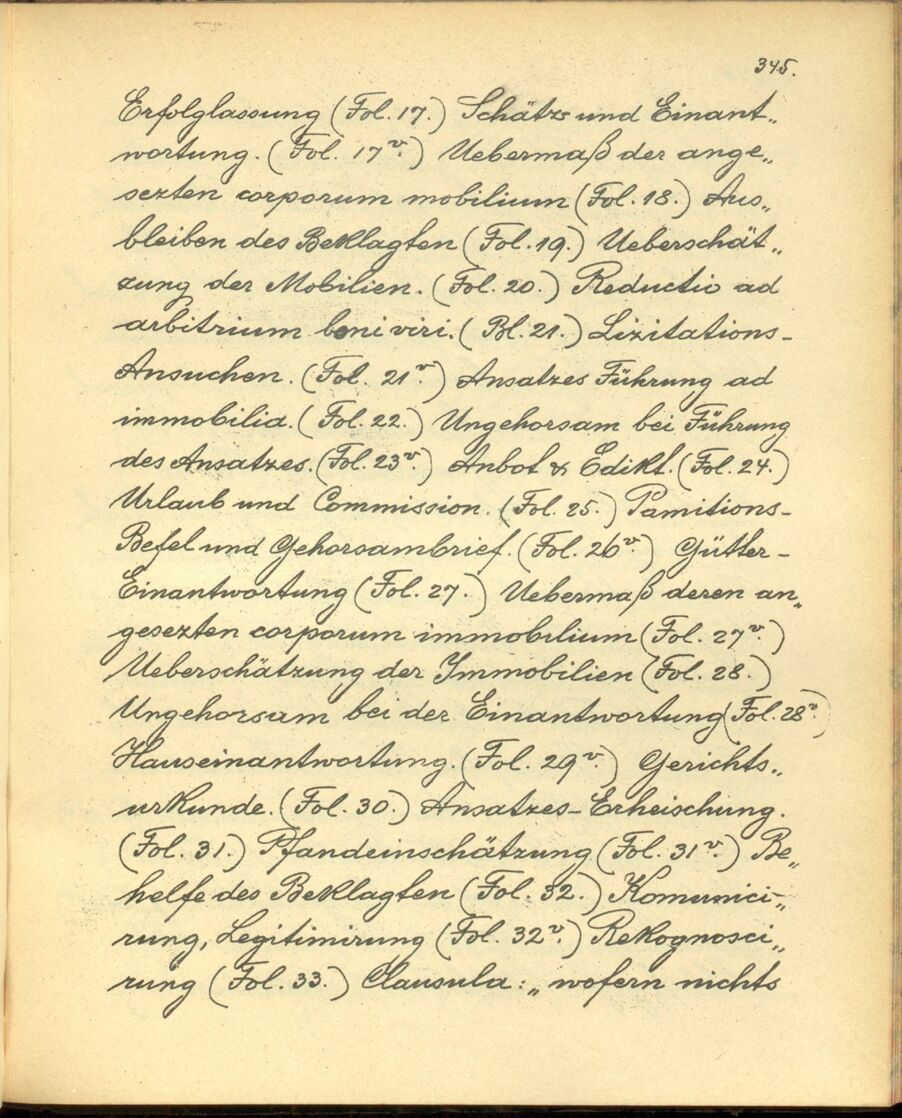 345.
Erfolglassung (Fol. 17.) Schätz und Einant„
wortung. (Fol. 17v.) Uebermaß der ange„
sezten corporum mobilium (Fol. 18.) Aus„
bleiben des Beklagten (Fol. 19.) Ueberschät„
zung der Mobilien. (Fol. 20.) Reductio ad
arbitrium boni viri. (Fol. 21.) Lizitations-
Ansuchen. (Fol. 21v.) Ansatzes Führung ad
immobilia. (Fol. 22.) Ungehorsam bei Führung
des Ansatzes. (Fol. 23v.) Anbot & Edikt. (Fol. 24.)
Urlaub und Commission. (Fol. 25.) Pamitions-
Befel und Gehorsambrief. (Fol. 26v.) Gütter-
Einantwortung (Fol. 27.) Uebermaß deren an„
gesezten corporum immobilium (Fol. 27v.)
Ueberschätzung der Immobilien (Fol. 28.)
Ungehorsam bei der Einantwortung (Fol. 28v.)
Hauseinantwortung. (Fol. 29v.) Gerichts„
urkunde. (Fol. 30.) Ansatzes-Erheischung.
(Fol. 31.) Pfandeinschätzung (Fol. 31v.) Be„
helfe des Beklagten (Fol. 32.) Komunici„
rung, Legitimirung (Fol. 32v.) Rekognosci„
rung (Fol. 33.) Clausula: „wofern nichts